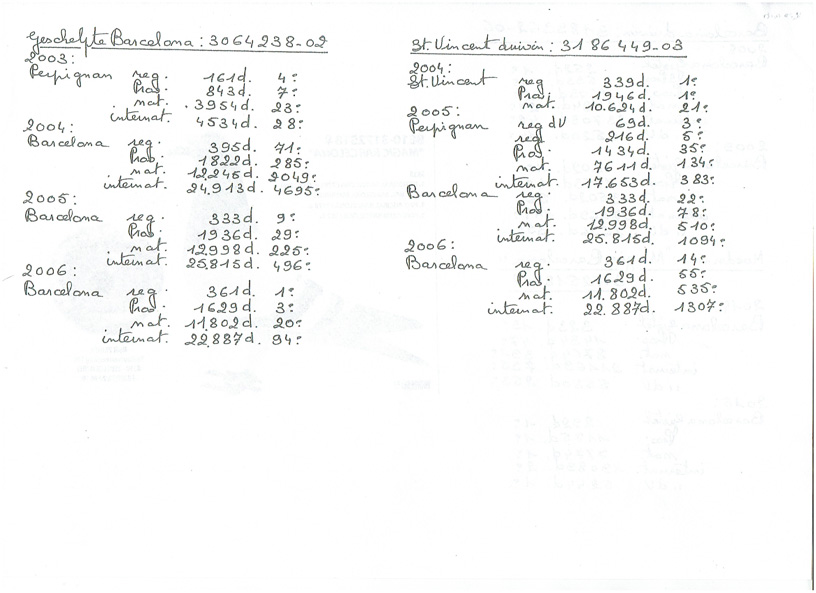 Geschelpte Barcelona : 3064238-02
2003:
Perpignan reg. 161d. 4e
Prov. 843d. 7e
nat. 3954d. 23e
internat. 4534d. 28e
2004:
Barcelona reg. 395d. 71e
Prov. 1822d. 285e
nat. 12.245d. 2049e
internat. 24.913d. 4695e
2005:
Barcelona reg. 333d. 9e
Prov. 1936d. 29e
nat. 12.998d. 225e
internat. 25.815d. 496e
2006:
Barcelona reg. 361d. 1e
Prov. 1629d. 3e
nat. 11.802d. 20e
internat. 22.887d. 94e
St. Vincent duivin : 3186449-03
2004:
St. Vincent reg 339d. 1e
Prov. 1946d. 1e
nat. 10.624d. 21e
2005:
Perpignan reg dV 69d. 3e
reg 216d. 5e
Prov. 1434d. 35e
nat. 7611d. 134e
internat. 17.653d. 383e
Barcelona reg. 333d. 22e
Prov. 1936d. 78e
nat. 12.998d. 510e
internat. 25.815d. 1094e
2006:
Barcelona reg. 361d. 14e
Prov. 1629d. 55e
nat. 11.802d. 535e
internat. 22.887d. 1307e